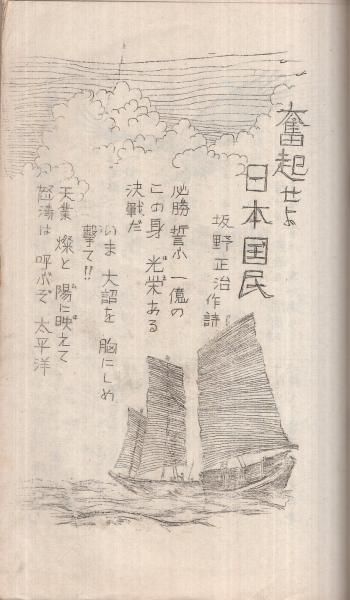 奮起せよ
日本国民
坂野正治作詩
必勝 誓ふ 一億の
この身 光栄ある
決戦だ
いま 大詔を 胸にしめ
撃て!!
天業 燦と 陽に映えて
怒濤は 呼ぶぞ 太平洋